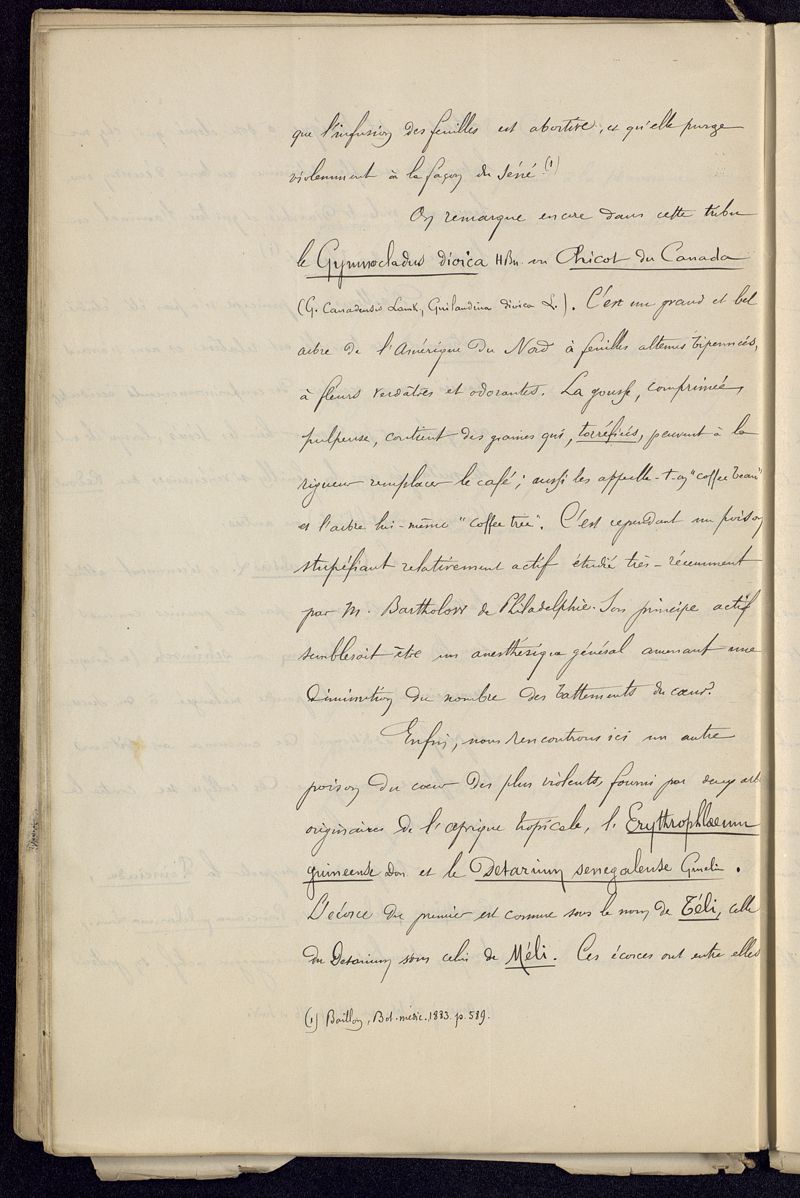 que l'infusion des feuilles est abortive, et qu'elle purge
violemment à la façon du Séné. (1)
On remarque encore dans cette tribu
le Gymnocladus dioica HBn. ou Chicot du Canada
(G. Canadensis Lamk, Guilandina dioica L.). C'est un grand et bel
arbre de l'Amérique du Nord à feuilles alternes bipennées,
à fleurs verdâtres et odorantes. La gousse, comprimée,
pulpeuse, contient des graines qui, torréfiées, peuvent à la
rigueur remplacer le café; aussi les appelle-t-on "coffee bean"
et l'arbre lui-même "coffee tree". C'est cependant un poison
stupéfiant relativement actif étudié très-récemment
par M. Bartholow de Philadelphie. Son principe actif
semblerait être un anesthésique général amenant une
diminution du nombre des battements du cœur.
Enfin, nous rencontrons ici un autre
poison du cœur des plus violents, fourni par deux
originaires de l'Afrique tropicale, l'Erythrophlaeum
guineense Don et le Detarium senegalense Gmelin.
L'écorce du premier est connue sous le nom de Téli, celle
du Detarium sous celui de Méli. Ces écorces ont entre elles
(1) Baillon, Bot. médic. 1883. p. 589.